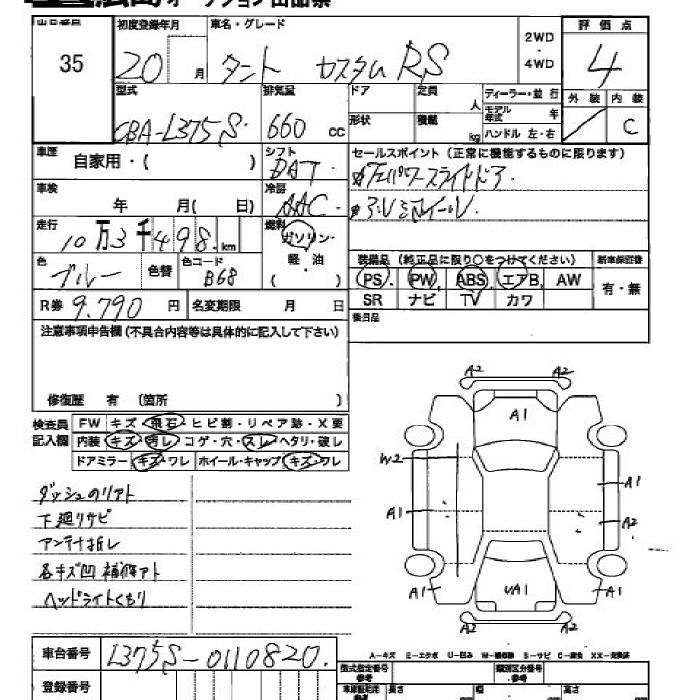 広島オークション出品票
出品番号 35
初度登録年月 20 月
車名・グレード タント カスタム RS
2WD・4WD
評価点 4
外装 内装 C
型式 CBA-L375S
排気量 660 cc
ドア 形状
定員 人 積載 kg
ディーラー・並行
モデル年式 年
ハンドル 左・右
車歴 自家用・( )
シフト DAT
セールスポイント (正常に機能するものに限ります)
パワースライドドア
アルミホイール
車検 年 月( 日)
冷房 AAC
走行 10万3千498 km
燃料 ガソリン・軽・油 ( )
色 ブルー 色替 色コード B68
装備品 (純正品に限り○をつけてください) 新車保証書
PS PW ABS エアB AW 有・無
SR ナビ TV カワ
R券 9.790 円 名変期限 月 日
後日品
注意事項申告欄 (不具合内容等は具体的に記入して下さい)
修復歴 有 (箇所 )
検査員記入欄
FW キズ・飛石・ヒビ割・リペア跡・X要
内装 キズ・汚レ・コゲ・穴・スレ・ヘタリ・破レ
ドアミラー キズ・ワレ ホイール・キャップ キズ・ワレ
ダッシュのリアト
下廻りサビ
アンテナ折レ
各キズ凹 補修アト
ヘッドライトくもり
A2 A2
A1
W2
A1
A1
A2
A1 UA1 A1
A2 A2
A-キズ E-エクボ U-凹み W-補修跡 S-サビ C-腐食 XX-交換済
車台番号 L375S-0110820.
登録番号
型式指定番号 参考
類別区分番号 参考
長さ 幅 高さ